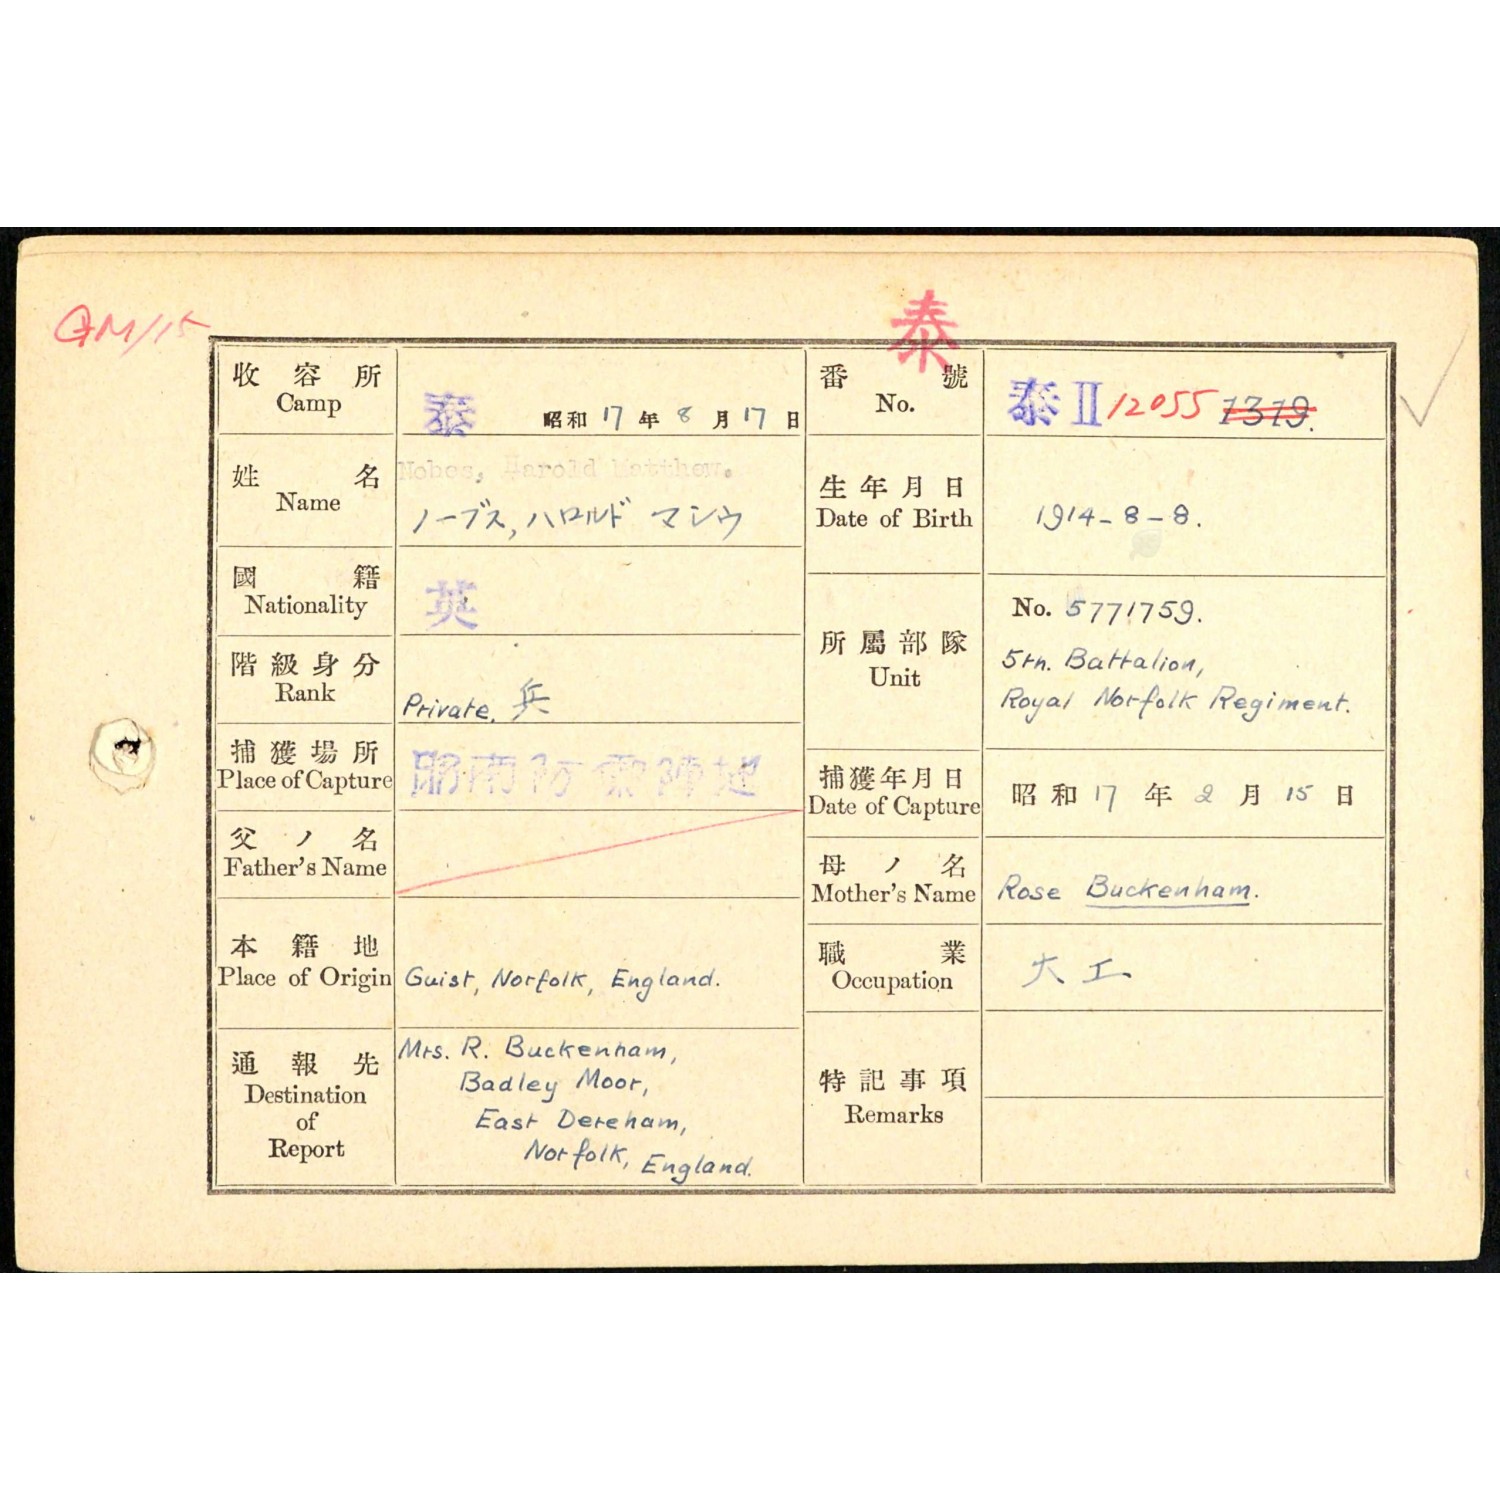 GM/15
泰
收容所
Camp
泰
昭和17年8月17日
番號
No.
泰II 12055 1319.
姓名
Name
Nobes, Harold Matthew.
ノーブス, ハロルド マシウ
生年月日
Date of Birth
1914-8-8.
國籍
Nationality
英
階級身分
Rank
Private. 兵
所屬部隊
Unit
No. 5771759.
5th. Battalion,
Royal Norfolk Regiment.
捕獲場所
Place of Capture
昭南防衛陣地
捕獲年月日
Date of Capture
昭和17年2月15日
父ノ名
Father's Name
母ノ名
Mother's Name
Rose Buckenham.
本籍地
Place of Origin
Guist, Norfolk, England.
職業
Occupation
大工
通報先
Destination
of
Report
Mrs. R. Buckenham,
Badley Moor,
East Dereham,
Norfolk, England.
特記事項
Remarks